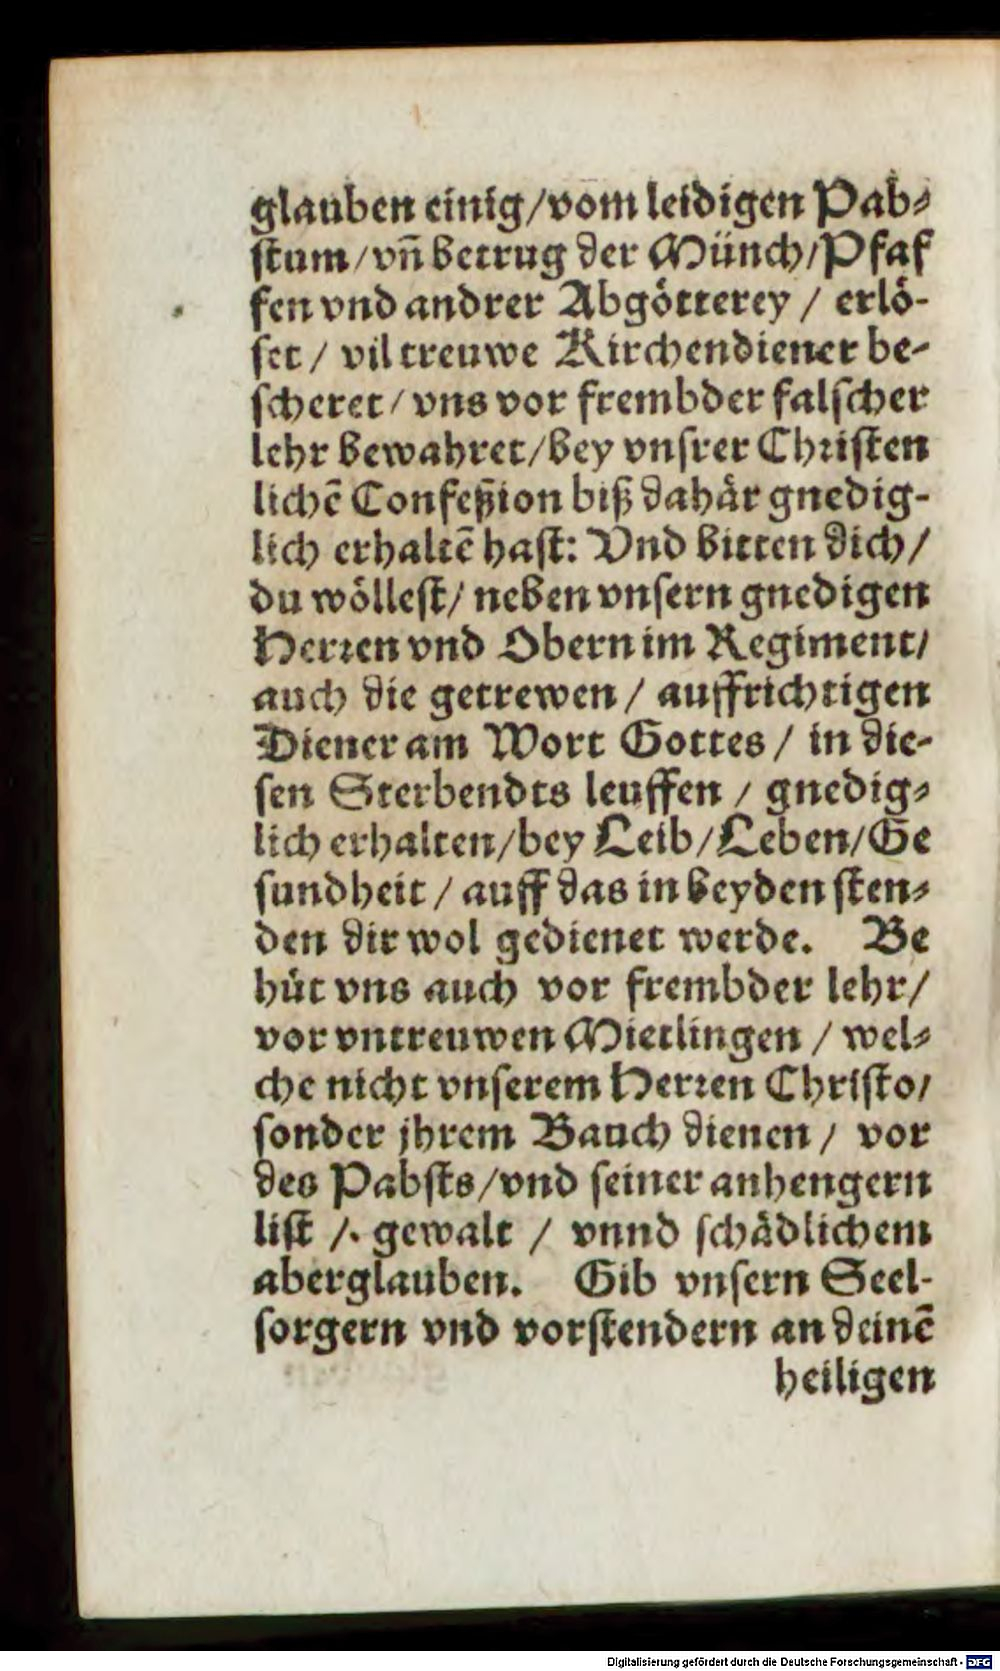 glauben einig/vom leidigen Pab⸗
ſtum/vn̄ betrug der Münch/Pfaf
fen vnd andrer Abgötterey / erlö-
ſet / vil treuwe Kirchendiener be-
ſcheret/ vns vor frembder falſcher
lehr bewahret/bey vnſrer Chꝛiſten
lichē Confeßion biß dahär gnedig-
lich erhaltē haſt: Vnd bitten dich/
du wölleſt/ neben vnſern gnedigen
Herꝛen vnd Obern im Regiment/
auch die getrewen / auffrichtigen
Diener am Wort Gottes / in die-
ſen Sterbendts leuffen / gnedig⸗
lich erhalten/bey Leib/Leben/Ge
ſundheit / auff das in beyden ſten⸗
den dir wol gedienet werde. Be
hüt vns auch vor frembder lehr/
vor vntreuwen Mietlingen / wel⸗
che nicht vnſerem Herꝛen Chriſto/
ſonder jhrem Bauch dienen / vor
des Pabſts/vnd ſeiner anhengern
liſt /. gewalt / vnnd ſchädlichem
aberglauben. Gib vnſern Seel-
ſorgern vnd vorſtendern an deinē
heiligen
Digitalisierung gefördert durch die Deutsche Forschungsgemeinschaft - DFG